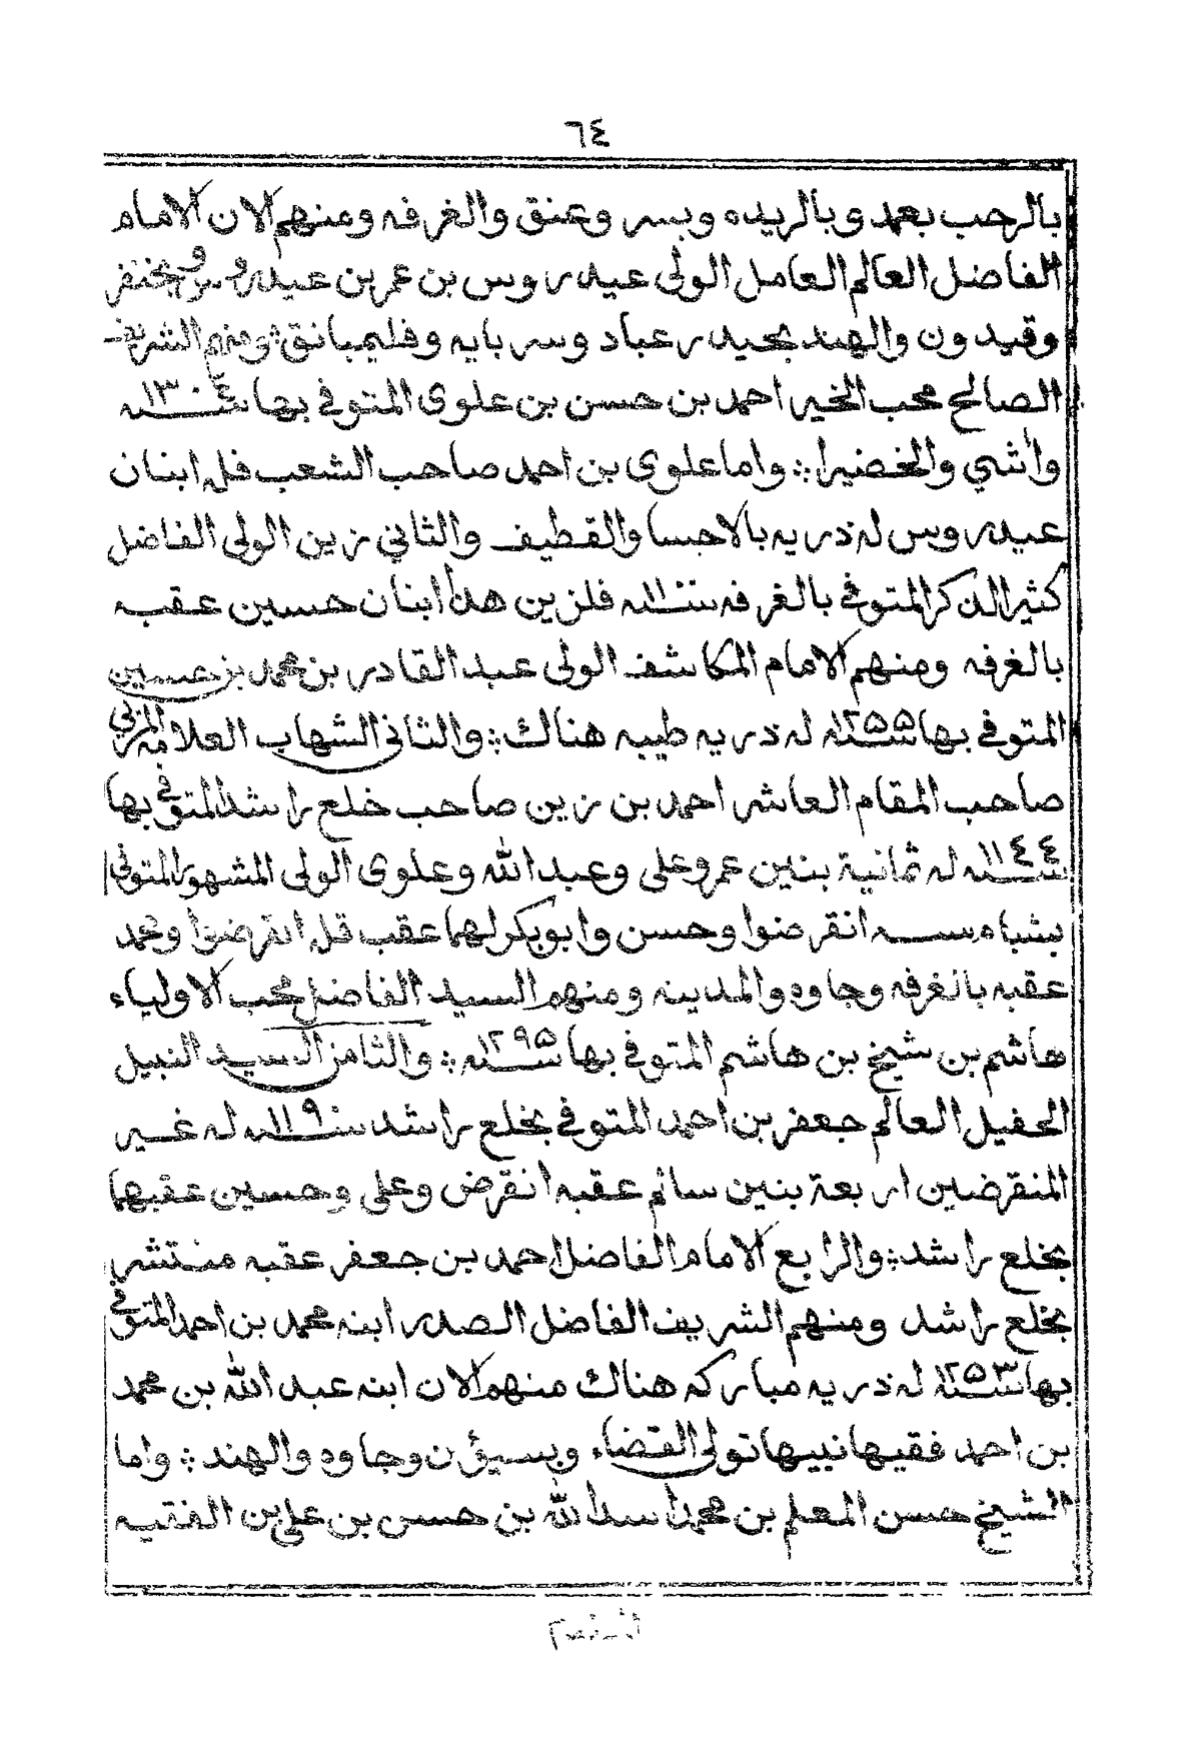 ٦٤
بالرحب بعمد وبالريده وبسر وعنق والغرفه ومنهم الان الامام
الفاضل العالم العامل الولى عيدروس بن عمر بن عيدروس
وقيدون والهند بحيدرعباد وسربايه وفليمبانق ومنهم الشريف
الصالح محب الخير احمد بن حسن بن علوى المتوفي بها سنه ١٣٠٤
وأشي والخضيرا ؞ واما علوى بن احمد صاحب الشعب فله ابنان
عيدروس له ذريه بالاحسا والقطيف والثاني زين الولى الفاضل
كثير الذكر المتوفي بالغرفه سنه فلزين هذا ابنان حسين عقبه
بالغرفه ومنهم الامام المكاشف الولى عبد القادر بن محمد بن حسين
المتوفي بها سنه ١٢٥٥ له ذريه طيبه هناك ؞ والثانى الشهاب العلامه
صاحب المقام العاشر احمد بن زين صاحب خلع راشد المتوفي بها
سنه ١١٤٤ له ثمانية بنين عمر وعلى وعبد الله وعلوى الولى المشهور المتوفى
بشباه سنه انقرضوا وحسن وابوبكر لهما عقب قل انقرضوا ومحمد
عقبه بالغرفه وجاوه والمدينه ومنهم السيد الفاضل محب الاولياء
هاشم بن شيخ بن هاشم المتوفي بها سنه ١٢٩٥ ؞ والثامن السيد النبيل
الحفيل العالم جعفر بن احمد المتوفي بخلع راشد سنه ١١٩٠ له غير
المنقرضين اربعة بنين سالم عقبه انقرض وعلى وحسين عقبهما
بخلع راشد ؞ والرابع الامام الفاضل احمد بن جعفر عقبه منتشر
بخلع راشد ومنهم الشريف الفاضل الصدر ابنه محمد بن احمد المتوفي
بها سنه ١٢٥٣ له ذريه مباركه هناك منهم الان ابنه عبد الله بن محمد
بن احمد فقيها نبيها تولى القضاء وبسيؤن وجاوه والهند ؞ واما
الشيخ حسن المعلم بن محمد اسد الله بن حسن بن علي بن الفقيه